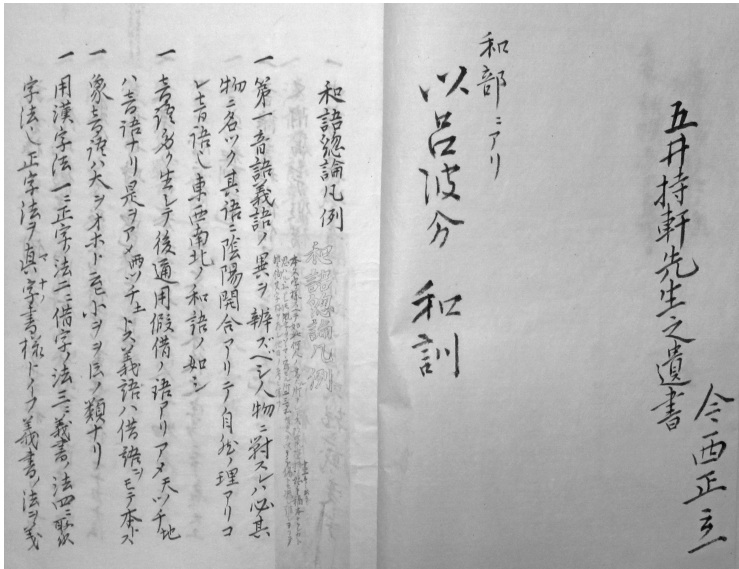 五井持軒先生之遺書
今西正立
和部ニアリ
以呂波分 和訓
和語総論凡例
一 第一音語義語ノ異ヲ辨ズベシ人物ニ對スレハ必其
物ニ名ツク其語ニ陰陽開合アリテ自然ノ理アリコ
レ音語也東西南北ノ和語ノ如シ
一 音語多ク生レテ後通用假借ノ語アリアメ天ツチ地
ハ音語ナリ是ヲアメ西ツチ土トス義語ハ借語ニモテ本トス
一 象音語ハ大ヲオホト云小ヲヲト云ノ類ナリ
一 用漢字法一ニ正字ノ法二ニ借字ノ法三ニ義書ノ法四ニ
字法也正字法ヲ真字書様トイフ義書ノ法ヲ義
マナ
和語総論凡例